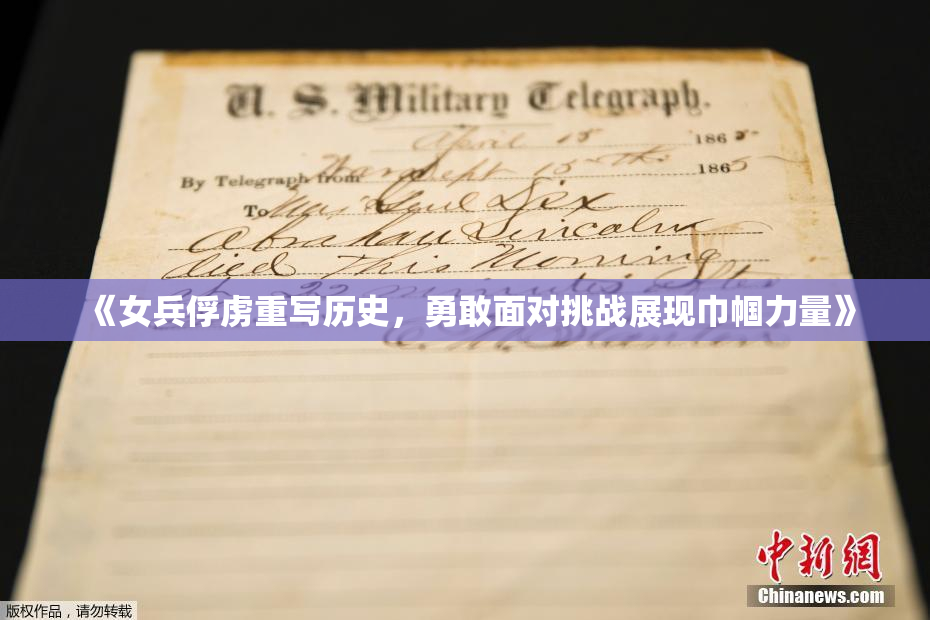 U. S. Military Telegraph.
April 15 1865
By Telegraph from War Dept 15th 1865
To Maj Genl Dix
Abraham Lincoln
died This Morning
at 22 minutes after
《女兵俘虏重写历史，勇敢面对挑战展现巾帼力量》
E. M. Stanton
中新网
Chinanews.com
版权作品，请勿转载